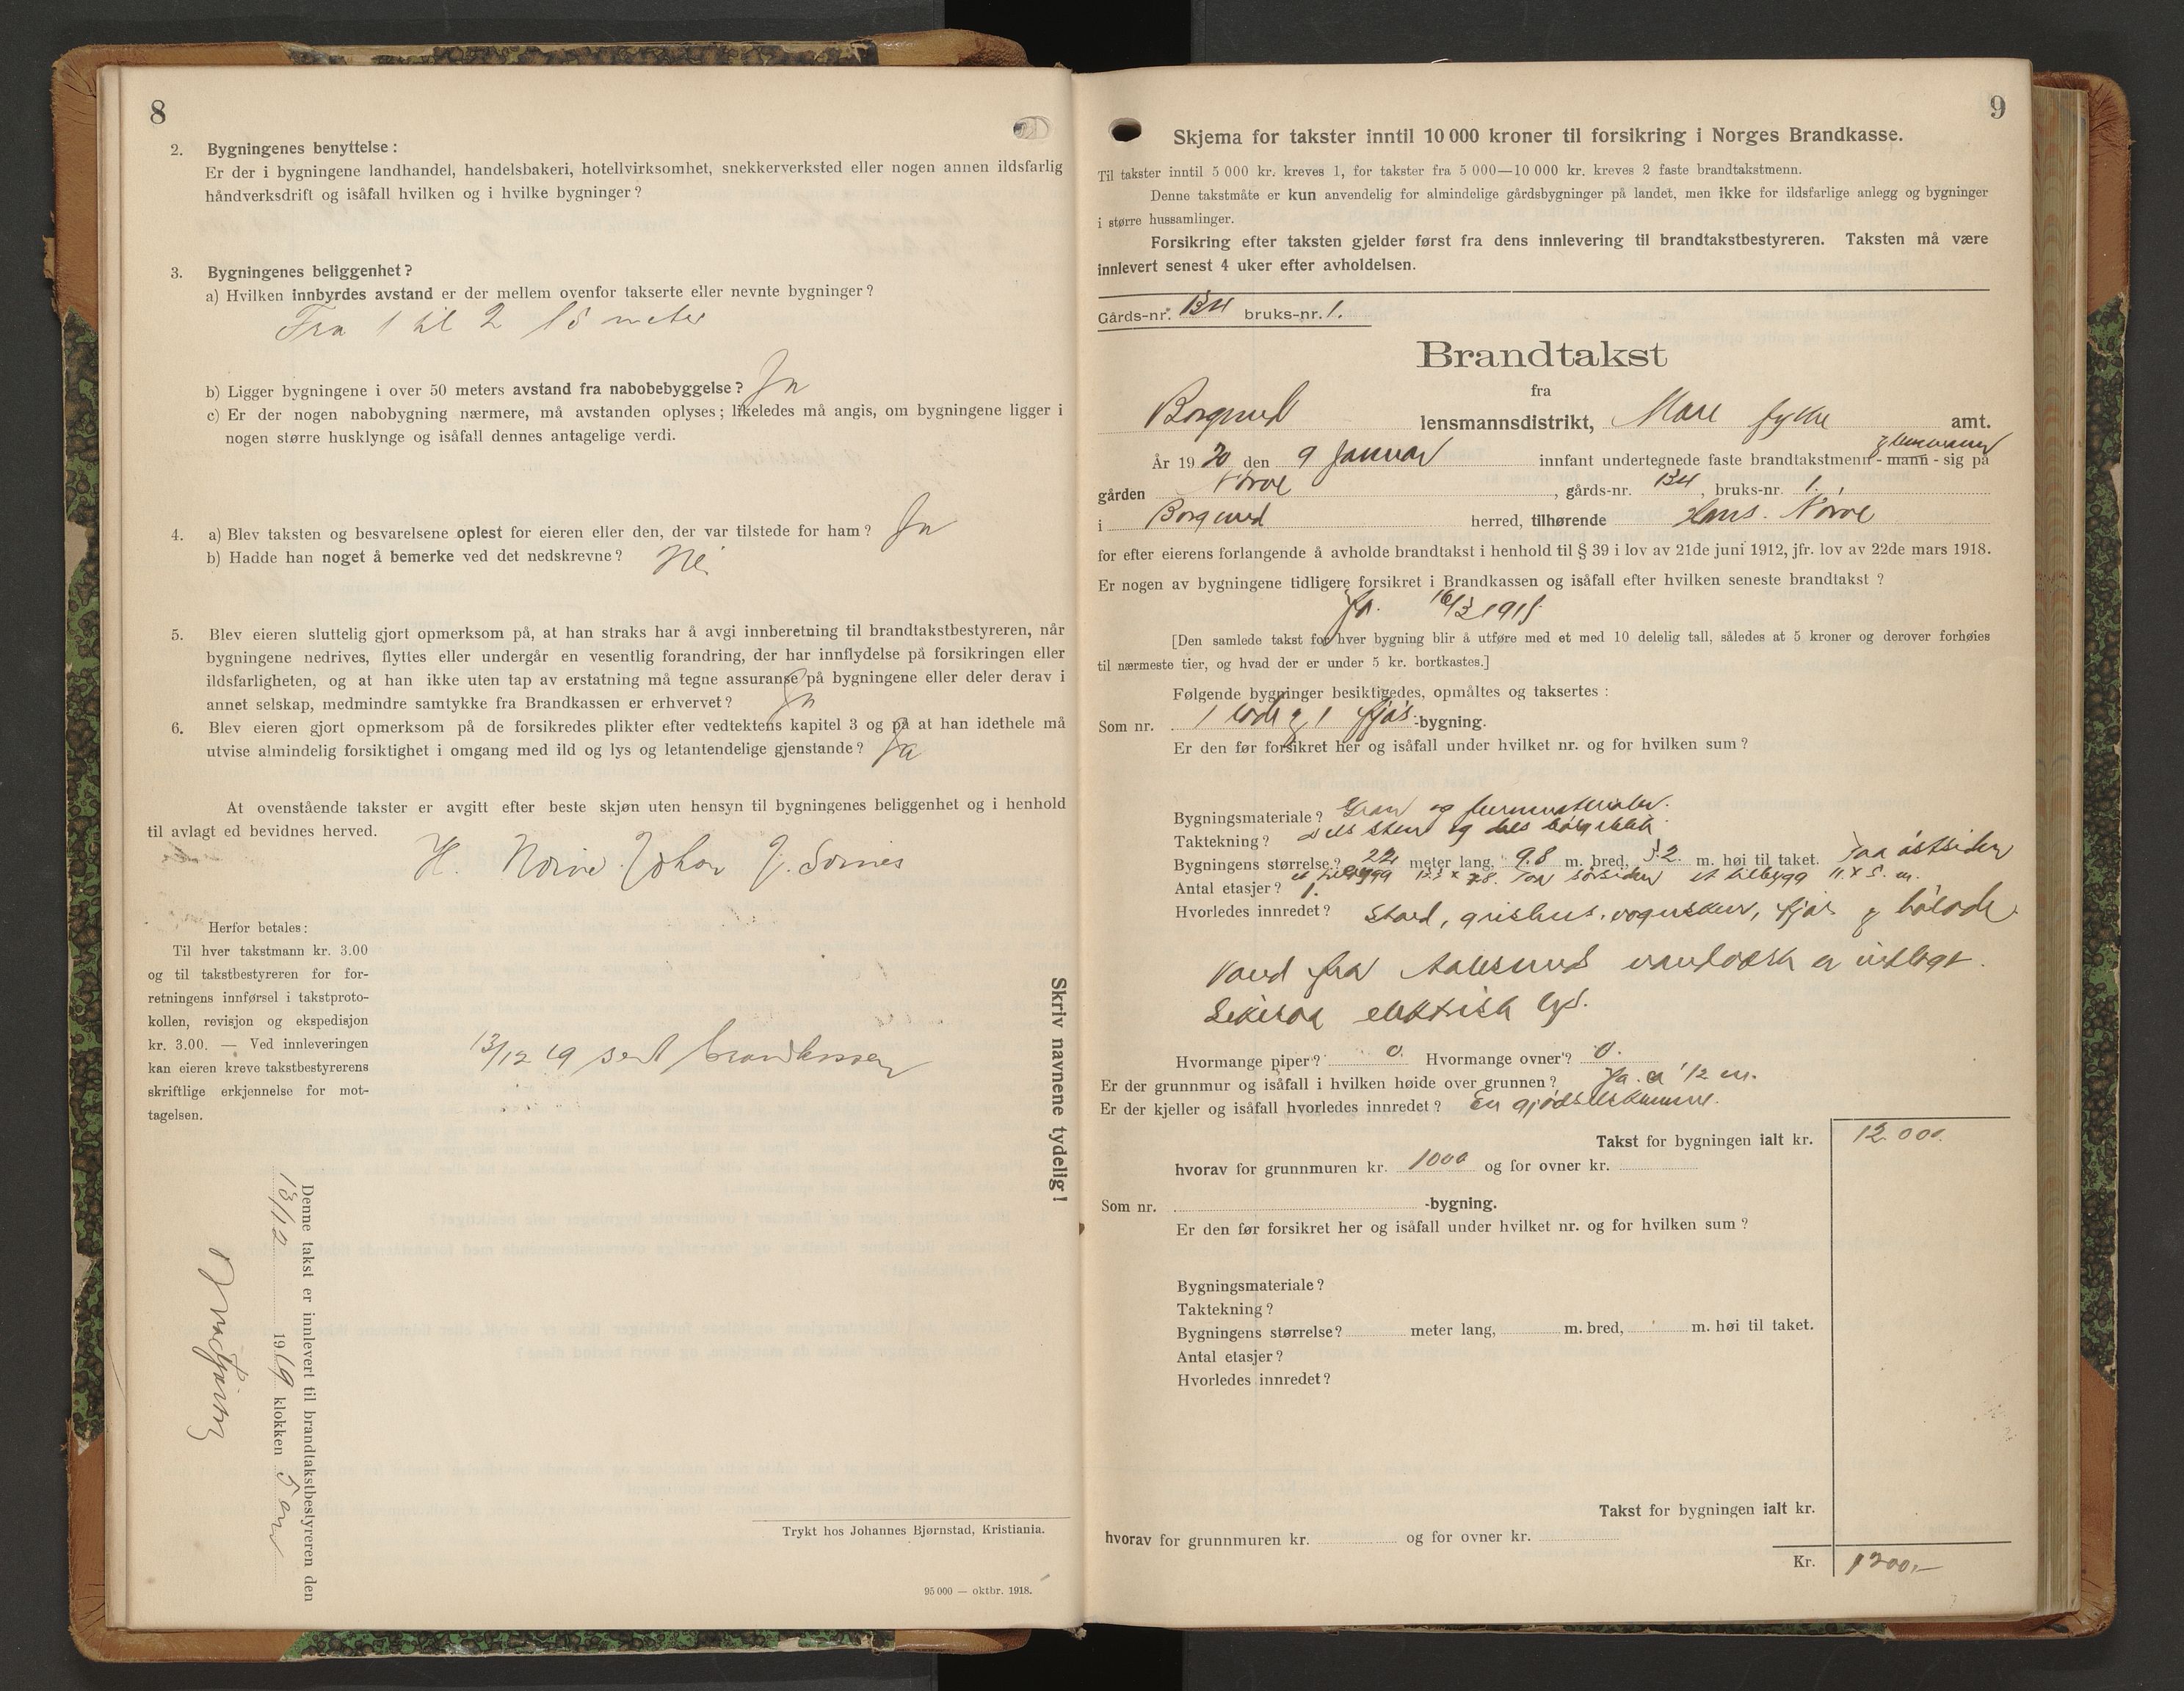 8
2. Bygningenes benyttelse :
Er der i bygningene landhandel, handelsbakeri, hotellvirksomhet, snekkerverksted eller nogen annen ildsfarlig
håndverksdrift og isåfall hvilken og i hvilke bygninger ?
3. Bygningenes beliggenhet ?
a) Hvilken innbyrdes avstand er der mellem ovenfor takserte eller nevnte bygninger ?
Fra 1 til 2 15 meter
b) Ligger bygningene i over 50 meters avstand fra nabobebyggelse ? Ja
c) Er der nogen nabobygning nærmere, må avstanden oplyses ; likeledes må angis, om bygningene ligger i
nogen større husklynge og isåfall dennes antagelige verdi.
4. a) Blev taksten og besvarelsene oplest for eieren eller den, der var tilstede for ham ? Ja
b) Hadde han noget å bemerke ved det nedskrevne ? Nei
5. Blev eieren sluttelig gjort opmerksom på, at han straks har å avgi innberetning til brandtakstbestyreren, når
bygningene nedrives, flyttes eller undergår en vesentlig forandring, der har innflydelse på forsikringen eller
ildsfarligheten, og at han ikke uten tap av erstatning må tegne assuranse på bygningene eller deler derav i
annet selskap, medmindre samtykke fra Brandkassen er erhvervet ? Ja
6. Blev eieren gjort opmerksom på de forsikredes plikter efter vedtektens kapitel 3 og på at han idethele må
utvise almindelig forsiktighet i omgang med ild og lys og letantendelige gjenstande ? Ja
At ovenstående takster er avgitt efter beste skjøn uten hensyn til bygningenes beliggenhet og i henhold
til avlagt ed bevidnes herved.
H. Nörve Johan J.
Herfor betales :
Til hver takstmann kr. 3.00
og til takstbestyreren for for-
retningens innførsel i takstproto-
kollen, revisjon og ekspedisjon
kr. 3.00. — Ved innleveringen
kan eieren kreve takstbestyrerens
skriftlige erkjennelse for mot-
tagelsen.
13/12 19 sent brandkassen
Skriv navnene tydelig !
Denne takst er innlevert til brandtakstbestyreren den
13/12 1919 klokken 5
Trykt hos Johannes Bjørnstad, Kristiania.
95 000 — oktbr. 1918.
9
Skjema for takster inntil 10 000 kroner til forsikring i Norges Brandkasse.
Til takster inntil 5 000 kr. kreves 1, for takster fra 5 000—10 000 kr. kreves 2 faste brandtakstmenn.
Denne takstmåte er kun anvendelig for almindelige gårdsbygninger på landet, men ikke for ildsfarlige anlegg og bygninger
i større hussamlinger.
Forsikring efter taksten gjelder først fra dens innlevering til brandtakstbestyreren. Taksten må være
innlevert senest 4 uker efter avholdelsen.
Gårds-nr. 134 bruks-nr. 1.
Brandtakst
fra
Borgund lensmannsdistrikt, Möre fylke amt.
År 1920 den 9 Januar innfant undertegnede faste brandtakstmenn - mann - sig på
gården Nörve , gårds-nr. 134 , bruks-nr. 1.
i Borgund herred, tilhørende Hans. Nörve
for efter eierens forlangende å avholde brandtakst i henhold til § 39 i lov av 21de juni 1912, jfr. lov av 22de mars 1918.
Er nogen av bygningene tidligere forsikret i Brandkassen og isåfall efter hvilken seneste brandtakst ?
Ja. 16/3 1915
[Den samlede takst for hver bygning blir å utføre med et med 10 delelig tall, således at 5 kroner og derover forhøies
til nærmeste tier, og hvad der er under 5 kr. bortkastes.]
Følgende bygninger besiktigedes, opmåltes og taksertes :
Som nr. 1 löde og 1 fjös -bygning.
Er den før forsikret her og isåfall under hvilket nr. og for hvilken sum ?
Bygningsmateriale ? Gran og furumaterialer.
Taktekning ? dels sten og dels bölgeblik
Bygningens størrelse ? 22 meter lang, 9.8 m. bred, 5.2 m. høi til taket. Paa östsiden
et tilbygg 12.5 x 7.8. Paa sörsiden et tilbygg 11. x 5. m.
Antal etasjer ? 1.
Hvorledes innredet ? Stald, grishus, vognskur, fjös og hölöde
Vand fra Aalesunds vandværk er indlagt.
Likesaa elektrisk lys.
Hvormange piper ? 0. Hvormange ovner ? 0.
Er der grunnmur og isåfall i hvilken høide over grunnen ? Ja. ca 1/2 m.
Er der kjeller og isåfall hvorledes innredet ? En gjödselskumme.
Takst for bygningen ialt kr. 12 000.
hvorav for grunnmuren kr. 1000 og for ovner kr.
Som nr. -bygning.
Er den før forsikret her og isåfall under hvilket nr. og for hvilken sum ?
Bygningsmateriale ?
Taktekning ?
Bygningens størrelse ? meter lang, m. bred, m. høi til taket.
Antal etasjer ?
Hvorledes innredet ?
Takst for bygningen ialt kr.
hvorav for grunnmuren kr. og for ovner kr.
Kr. 1200,—